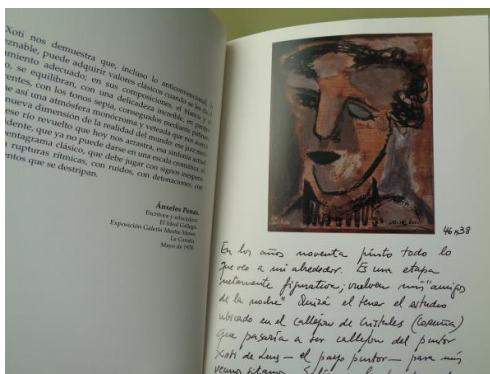 Xoti nos demuestra que, incluso lo anticonvencional, lo
deleznable, puede adquirir valores clásicos cuando se les da el
adecuado, en sus composiciones, el blanco y el
se equilibran, con una delicadeza increíble, en
con los tonos sepia, conseguidos mediante
así una atmósfera monócroma y veteada que nos acerca
nueva dimensión de la realidad del mundo
ese río revuelto que hoy nos arrastra, esa sinfonía actual
que ya no puede darse en una escala cromática, ni
pentagrama clásico, que debe jugar con signos
rupturas rítmicas, con ruidos, con detonaciones, con
que se destripan.
Ánxeles Penas.
Escritora y educadora.
El Ideal Gallego.
Exposición Galería Mestre Mateo.
La Coruña.
Mayo de 1979.
46x38
En los años noventa pinto todo lo
que veo a mi alrededor. Es una etapa
netamente figurativa; vuelven mis "amigos
de la noche" Quizá el tener el estudio
ubicado en el callejón de Cristales (Coruña)
que pasaría a ser callejón del pintor
Xoti de Luis — el payo pintor — para mis
vecinos gitanos.